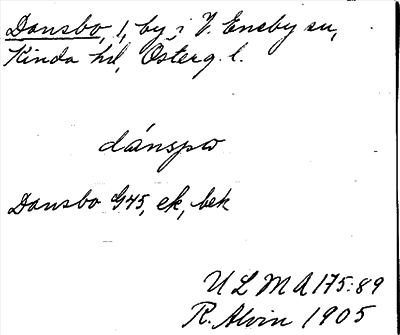 Dansbo, 1, by, i V. Eneby sn,
Kinda hd, Österg. l.
dánspω
Dansbo G45, ek, bek
ULMA 175:89
R. Alvin 1905